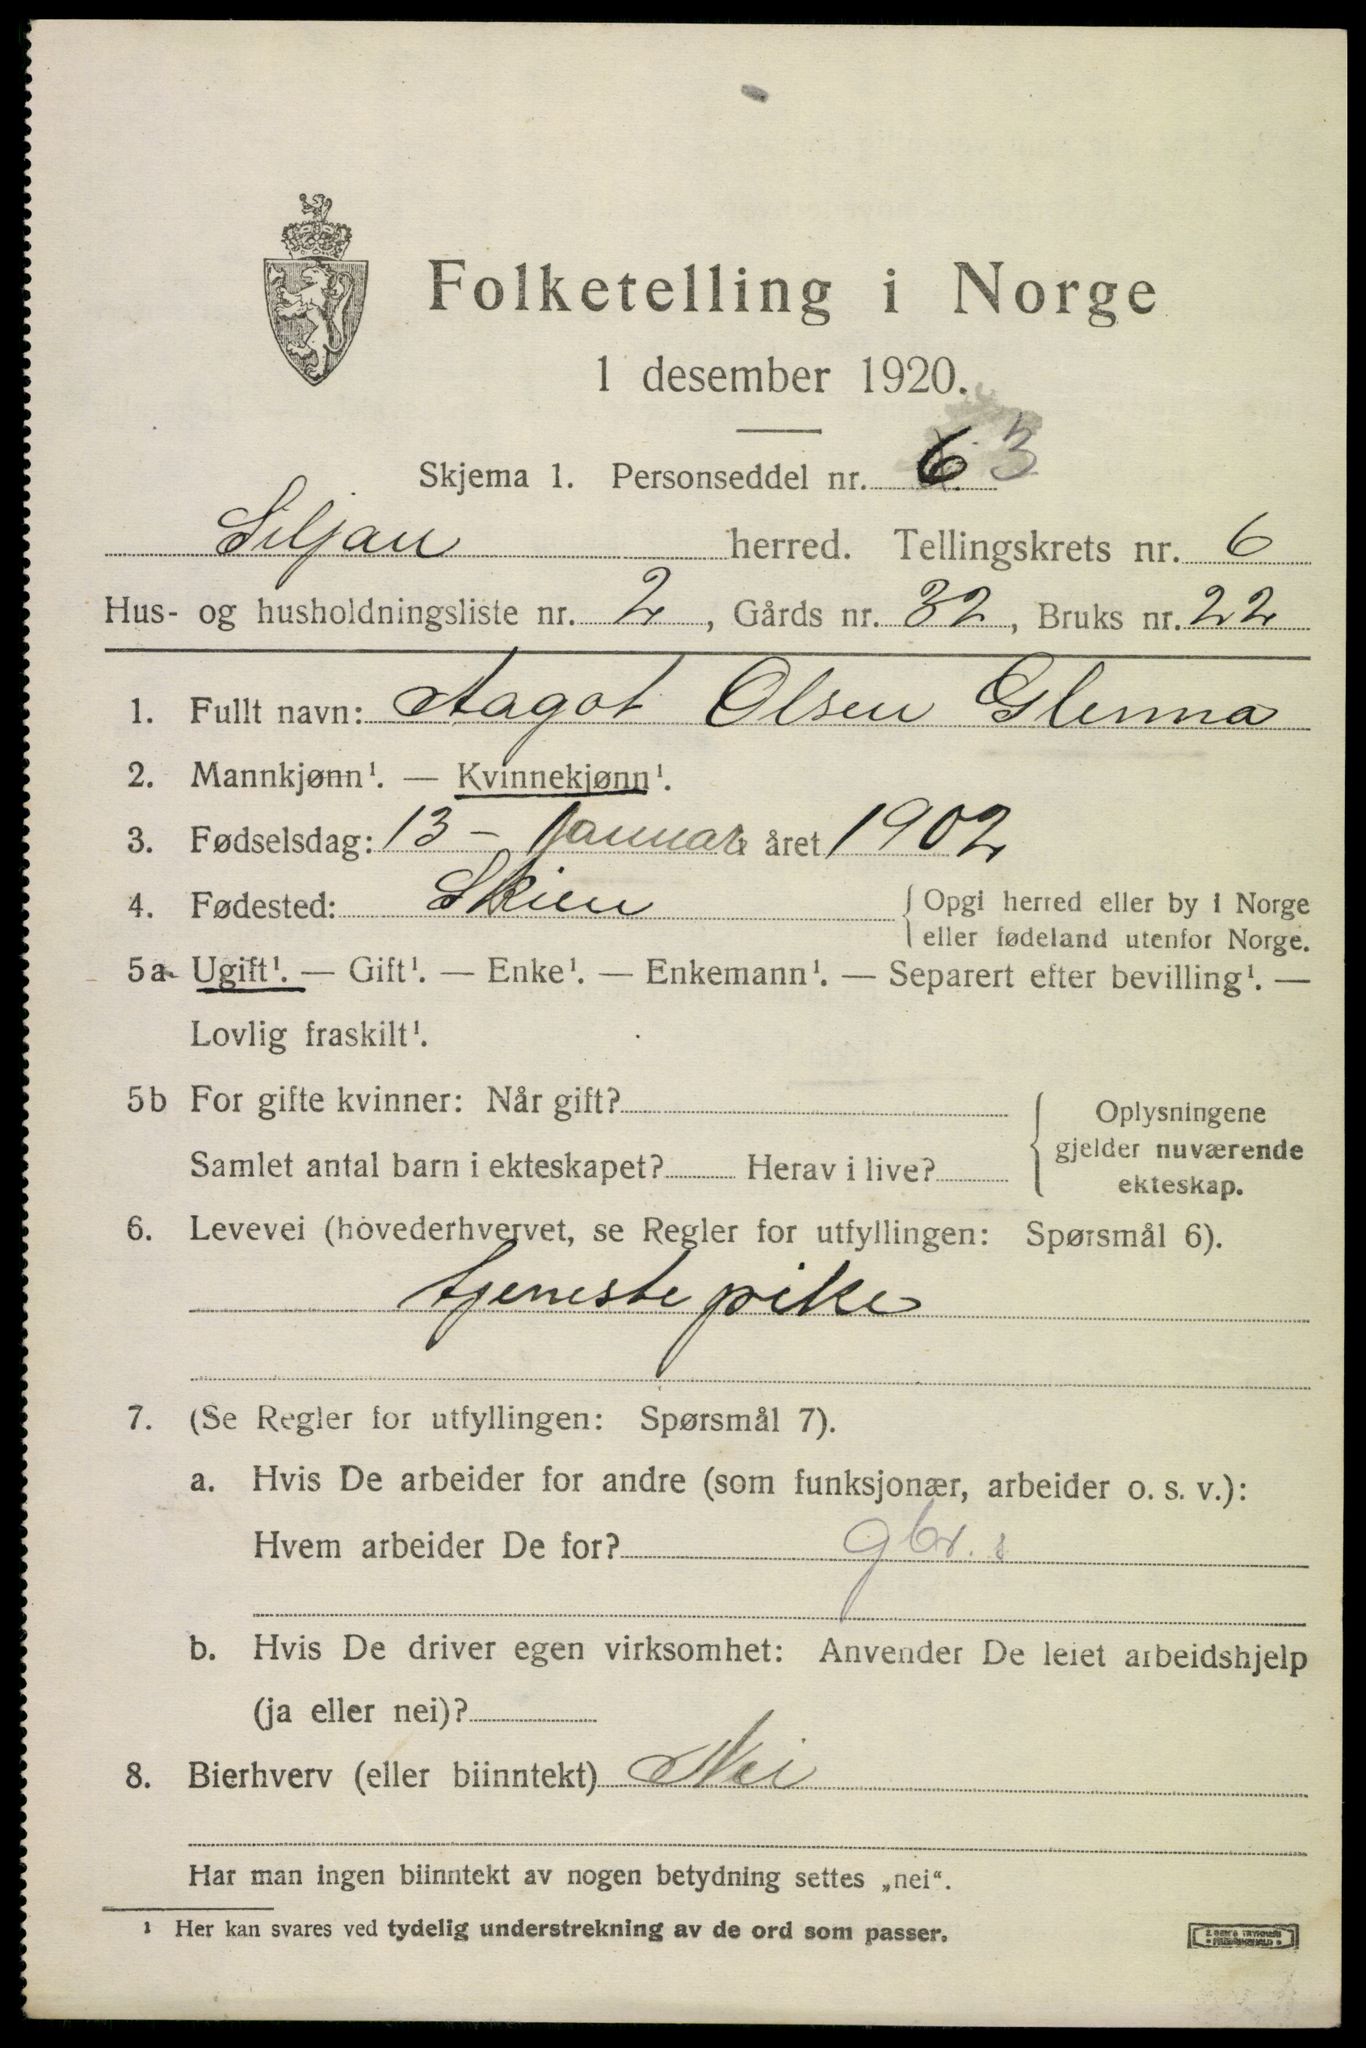 Folketelling i Norge
1 desember 1920.
Skjema 1. Personseddel nr. 63
Siljan herred. Tellingskrets nr. 6
Hus- og husholdningsliste nr. 2, Gårds nr. 32, Bruks nr. 22
1. Fullt navn: Aagot Olsen Glenna
2. Mannkjønn¹. — Kvinnekjønn¹.
3. Fødselsdag: 13 - Januar året 1902
4. Fødested: Skien { Opgi herred eller by i Norge
eller fødeland utenfor Norge.
5a Ugift¹. — Gift¹. — Enke¹. — Enkemann¹. — Separert efter bevilling¹. —
Lovlig fraskilt¹.
5b For gifte kvinner: Når gift? { Oplysningene
gjelder nuværende
Samlet antal barn i ekteskapet? Herav i live?
ekteskap.
6. Levevei (hovederhvervet, se Regler for utfyllingen: Spørsmål 6).
tjeneste pike
7. (Se Regler for utfyllingen: Spørsmål 7).
a. Hvis De arbeider for andre (som funksjonær, arbeider o. s. v.):
Hvem arbeider De for? gbr. s
b. Hvis De driver egen virksomhet: Anvender De leiet arbeidshjelp
(ja eller nei)?
8. Bierhverv (eller biinntekt) Nei
Har man ingen biinntekt av nogen betydning settes „nei“.
¹ Her kan svares ved tydelig understrekning av de ord som passer.